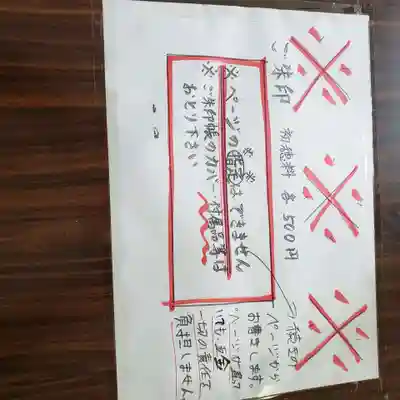 ※ ※ ※
ご朱印 初穂料 各500円
※ページの指定はできません
※ご朱印帳のカバー・付属品等は
おとり下さい
ページから
お書きします。
一切の責任を
負担しません